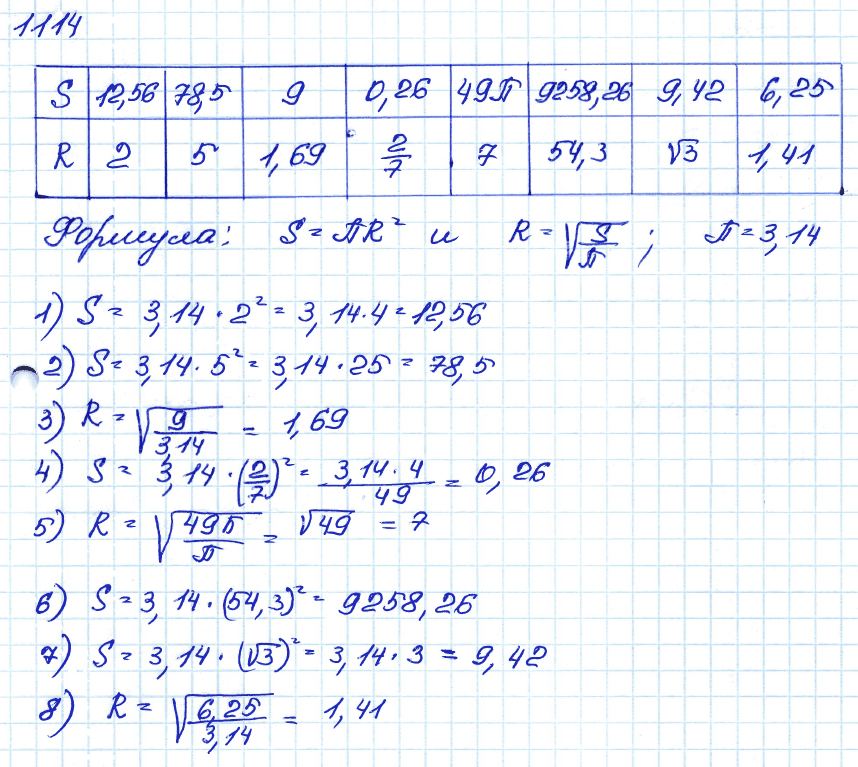 1114
S 12,56 78,5 9 0,26 49П 9258,26 9,42 6,25
R 2 5 1,69 2/7 7 54,3 √3 1,41
Формула: S = ПR² и R = √(S/П) ; П = 3,14
1) S = 3,14 · 2² = 3,14 · 4 = 12,56
2) S = 3,14 · 5² = 3,14 · 25 = 78,5
3) R = √(9/3,14) = 1,69
4) S = 3,14 · (2/7)² = (3,14 · 4)/49 = 0,26
5) R = √(49П/П) = √49 = 7
6) S = 3,14 · (54,3)² = 9258,26
7) S = 3,14 · (√3)² = 3,14 · 3 = 9,42
8) R = √(6,25/3,14) = 1,41